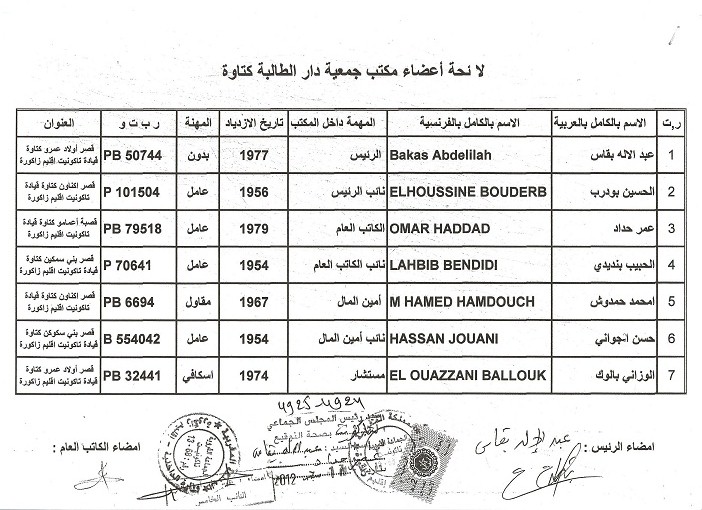 لائحة أعضاء مكتب جمعية دار الطالبة كتاوة
ر,ت الاسم بالكامل بالعربية الاسم بالكامل بالفرنسية المهمة داخل المكتب تاريخ الازدياد المهنة ر ب ت و العنوان
1 عبد الاله بقاس Bakas Abdelilah الرئيس 1977 بدون PB 50744 قصر أولاد عمرو كتاوة
قيادة تاكونيت اقليم زاكورة
2 الحسين بودرب ELHOUSSINE BOUDERB نائب الرئيس 1956 عامل P 101504 قصر اكناون كتاوة قيادة
تاكونيت اقليم زاكورة
3 عمر حداد OMAR HADDAD الكاتب العام 1979 عامل PB 79518 قصبة أعمامو كتاوة قيادة
تاكونيت اقليم زاكورة
4 الحبيب بنديدي LAHBIB BENDIDI نائب الكاتب العام 1954 عامل P 70641 قصر بني سمكين كتاوة
قيادة تاكونيت اقليم زاكورة
5 امحمد حمدوش M HAMED HAMDOUCH أمين المال 1967 مقاول PB 6694 قصر اكناون كتاوة قيادة
تاكونيت اقليم زاكورة
6 حسن اجواني HASSAN JOUANI نائب أمين المال 1954 عامل B 554042 قصر بني سكوكن كتاوة
قيادة تاكونيت اقليم زاكورة
7 الوزاني بالوك EL OUAZZANI BALLOUK مستشار 1974 اسكافي PB 32441 قصر أولاد عمرو كتاوة
قيادة تاكونيت اقليم زاكورة
رئيس المجلس الجماعي
امضاء الرئيس : عبد الإله بقاس
امضاء الكاتب العام :
2012
النائب الخامس